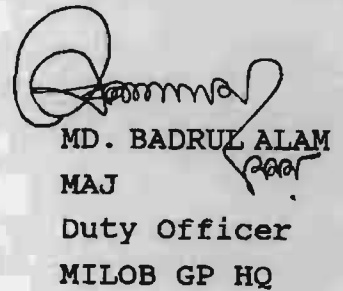 MD. BADRUL ALAM
MAJ
Duty Officer
MILOB GP HQ